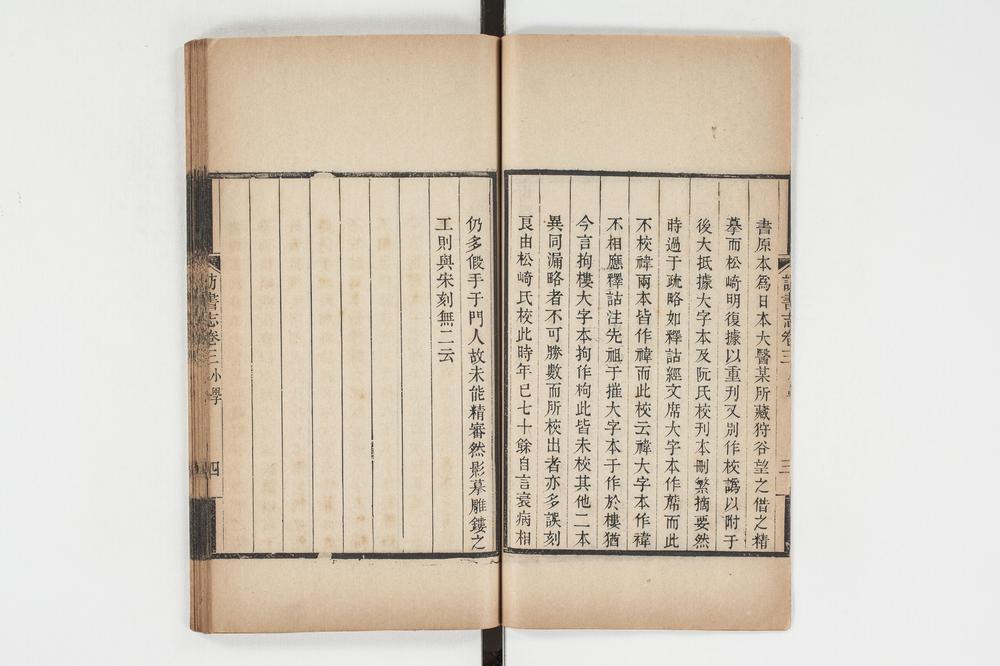 書原本爲日本大醫某所藏狩谷望之借之精
摹而松崎明復據以重刋又别作校譌以附于
後大抵據大字本及阮氏校刋本刪繁摘要然
時過于疏略如釋詁經文席大字本作蓆而此
不校禕兩本皆作禕而此校云禕大字本作褘
不相應釋詁注先祖于摧大字本于作於樓猶
今言拘樓大字本拘作枸此皆未校其他二本
異同漏略者不可勝數而所校出者亦多誤刻
良由松崎氏校此時年已七十餘自言衰病相
訪書志卷三 小學
三
仍多假手于門人故未能精審然影摹雕鏤之
工則與宋刻無二云
訪書志卷三 小學
四